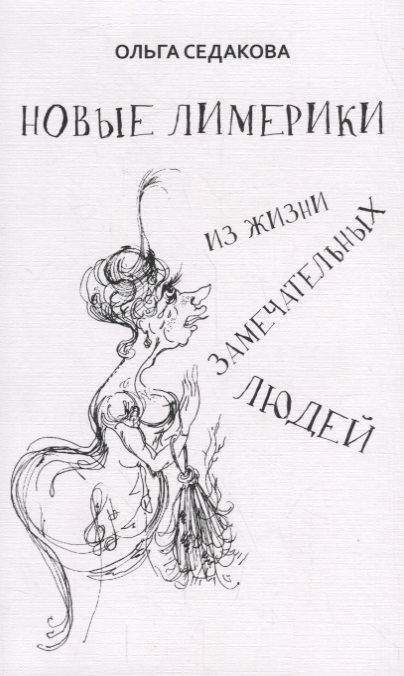 ОЛЬГА СЕДАКОВА
НОВЫЕ ЛИМЕРИКИ
ИЗ ЖИЗНИ
ЗАМЕЧАТЕЛЬНЫХ
ЛЮДЕЙ